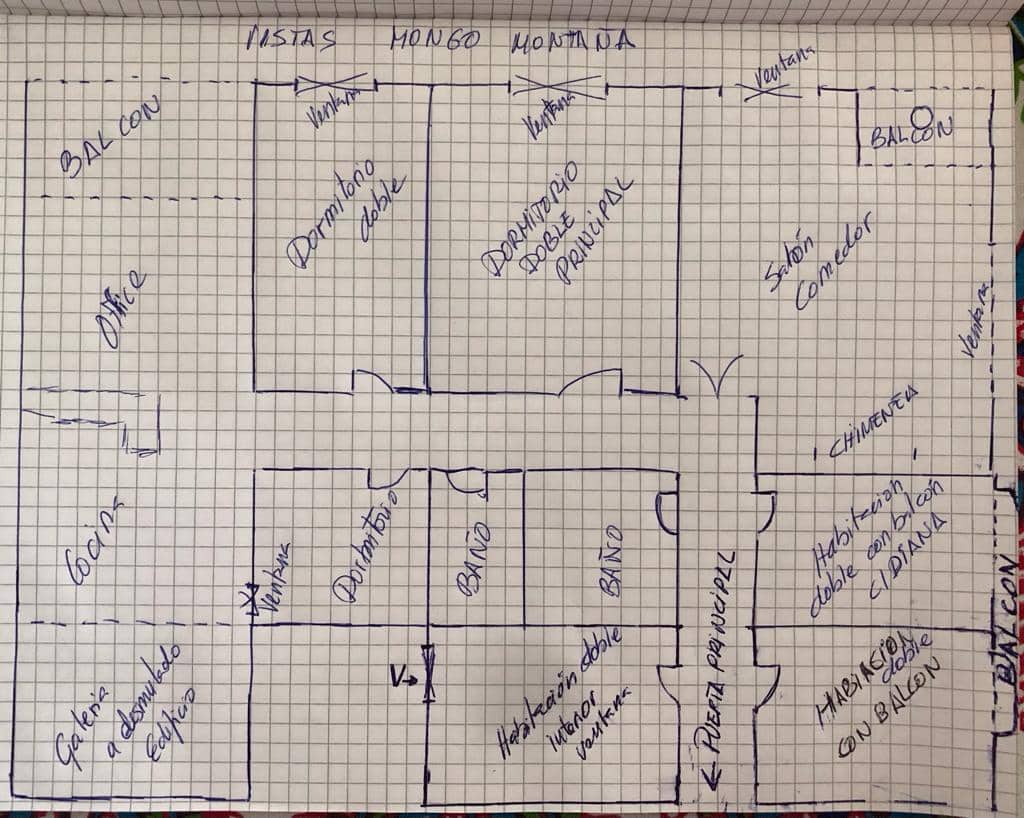 VISTAS MONGO MONTAÑA
BALCON
Ventana
Ventana
Ventana
BALCON
Dormitorio
doble
DORMITORIO
DOBLE
PRINCIPAL
Salón
Comedor
Office
Ventana
CHIMENEA
Cocina
Ventana
Dormitorio
BAÑO
BAÑO
Habitacion
doble con balcon
BALCON
Galeria
a
Edificio
V→
Habitación doble
interior
ventana
← PUERTA PRINCIPAL
HABIACION
doble
CON BALCON